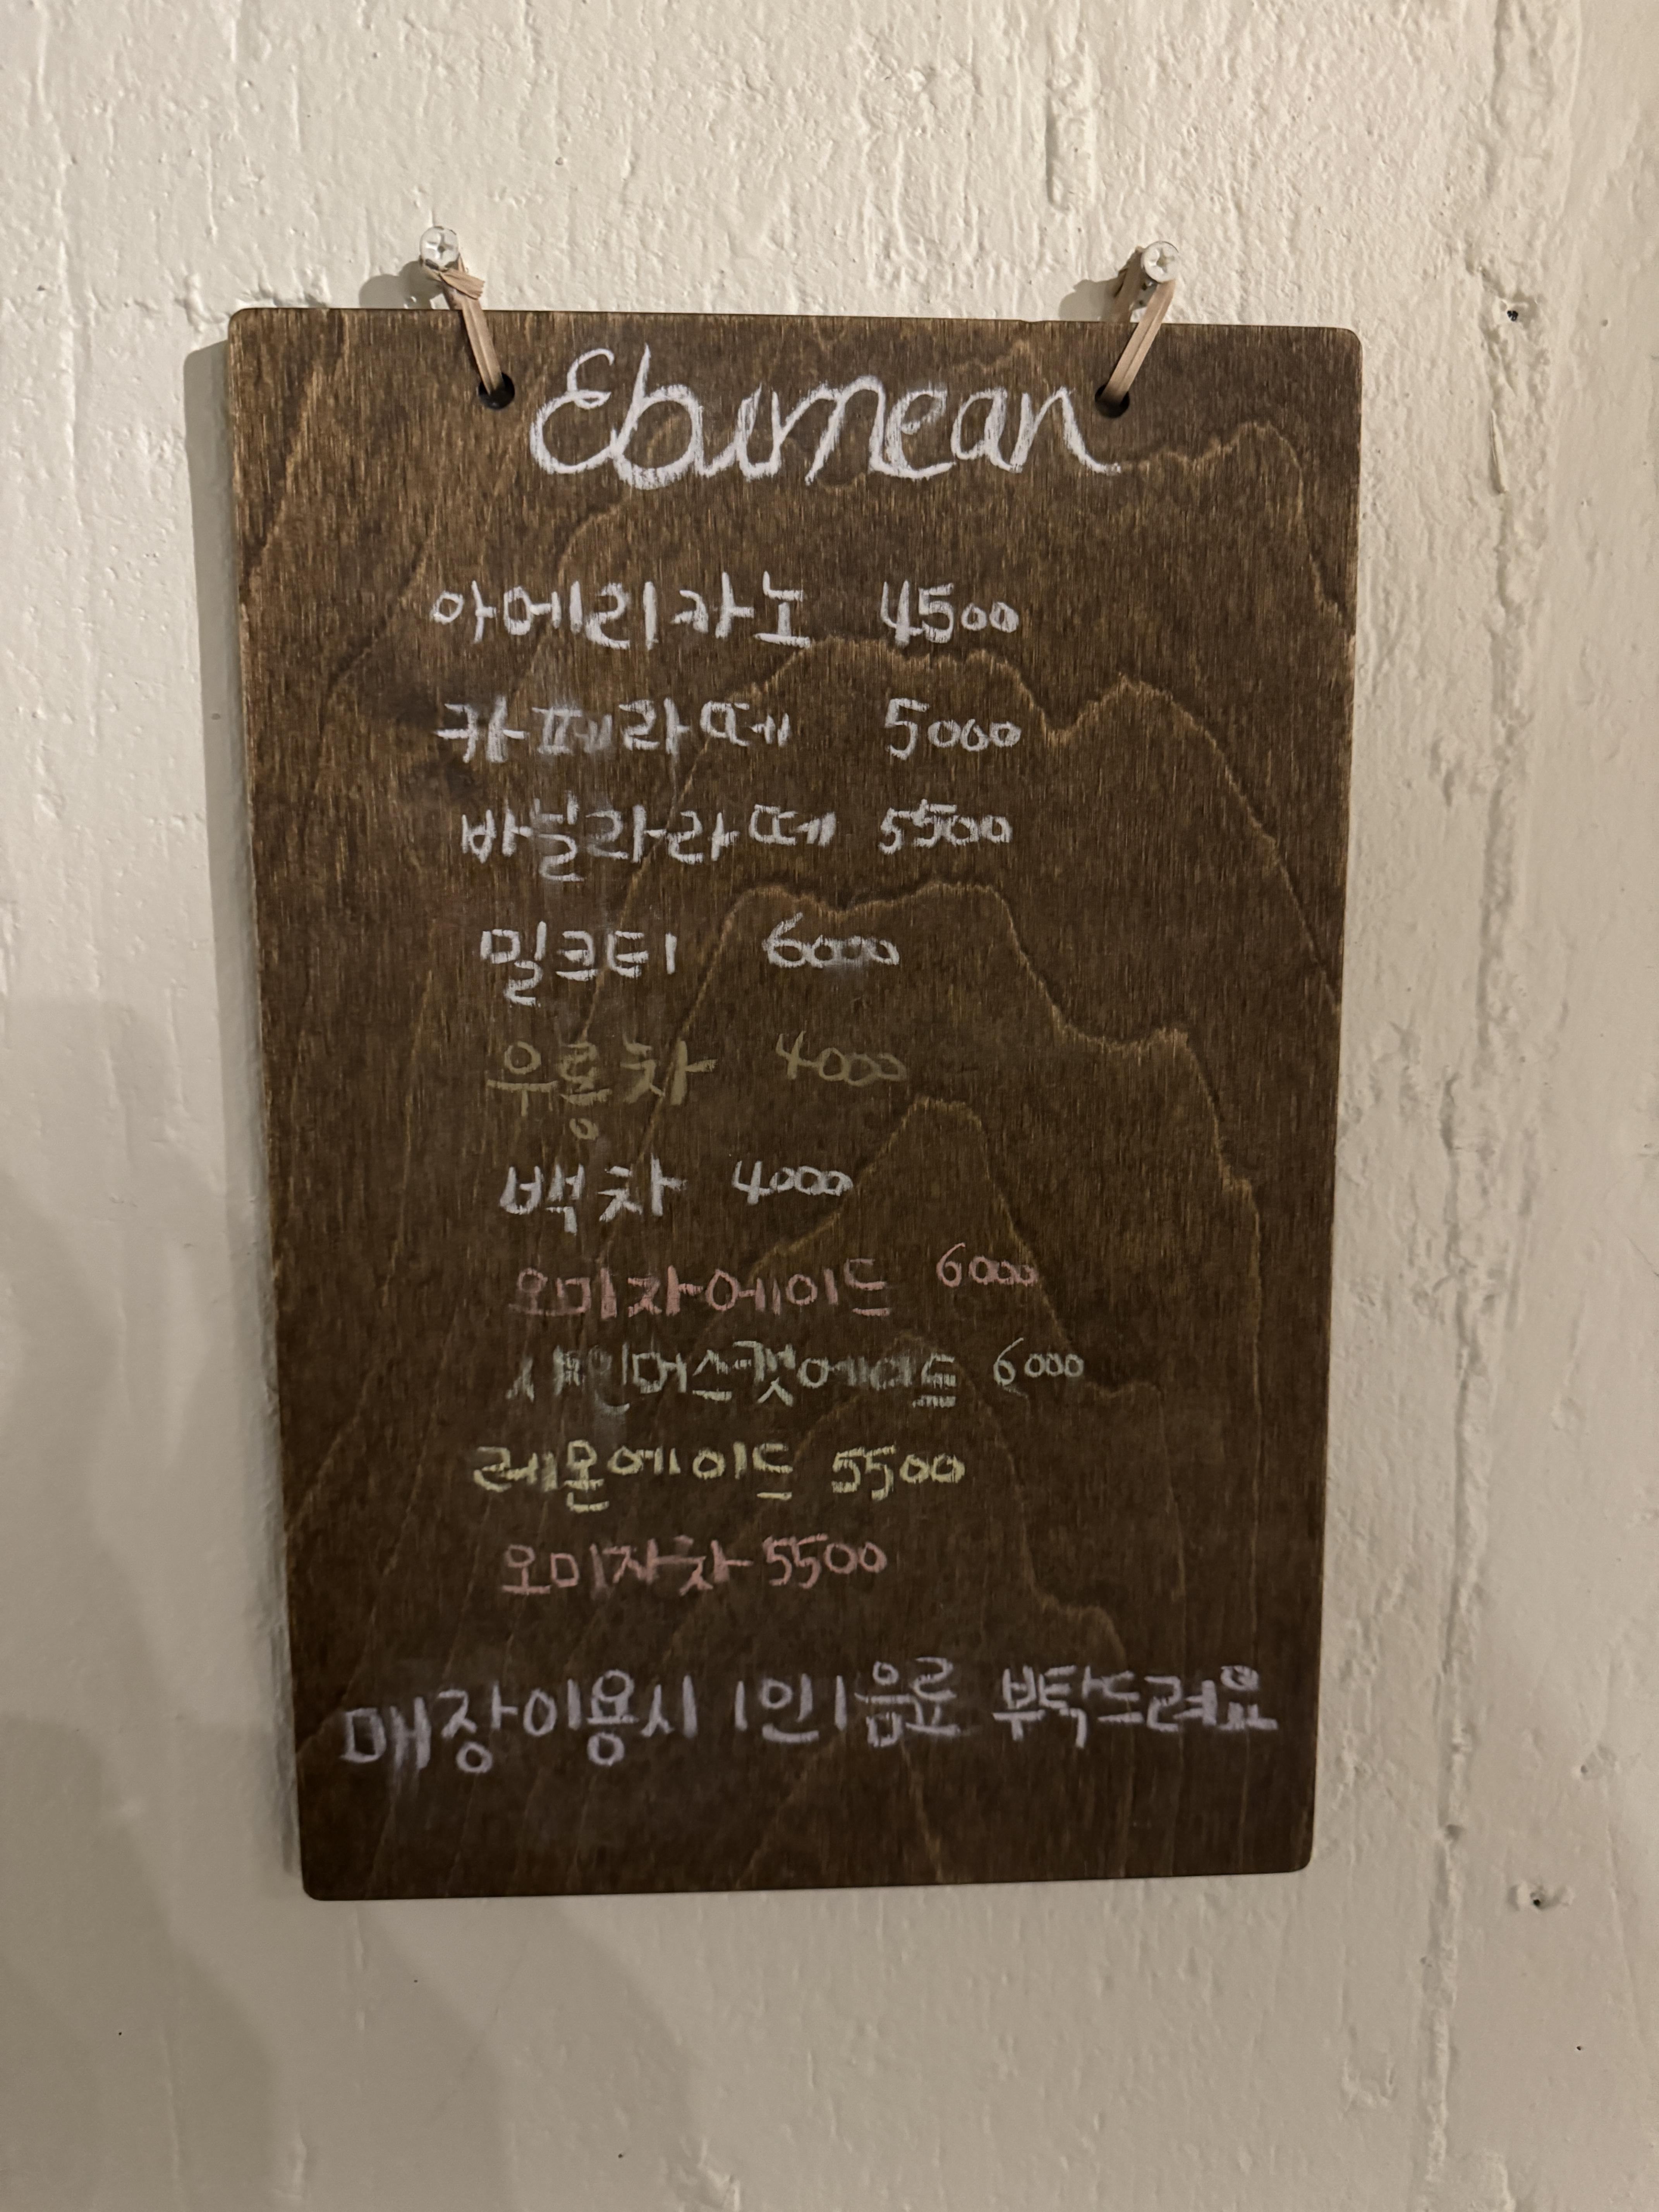 Eburnean
아메리카노 4500
카페라떼 5000
바닐라라떼 5500
밀크티 6000
우롱차 4000
백차 4000
오미자에이드 6000
샤인머스캣에이드 6000
레몬에이드 5500
오미자차 5500
매장이용시 1인1음료 부탁드려요